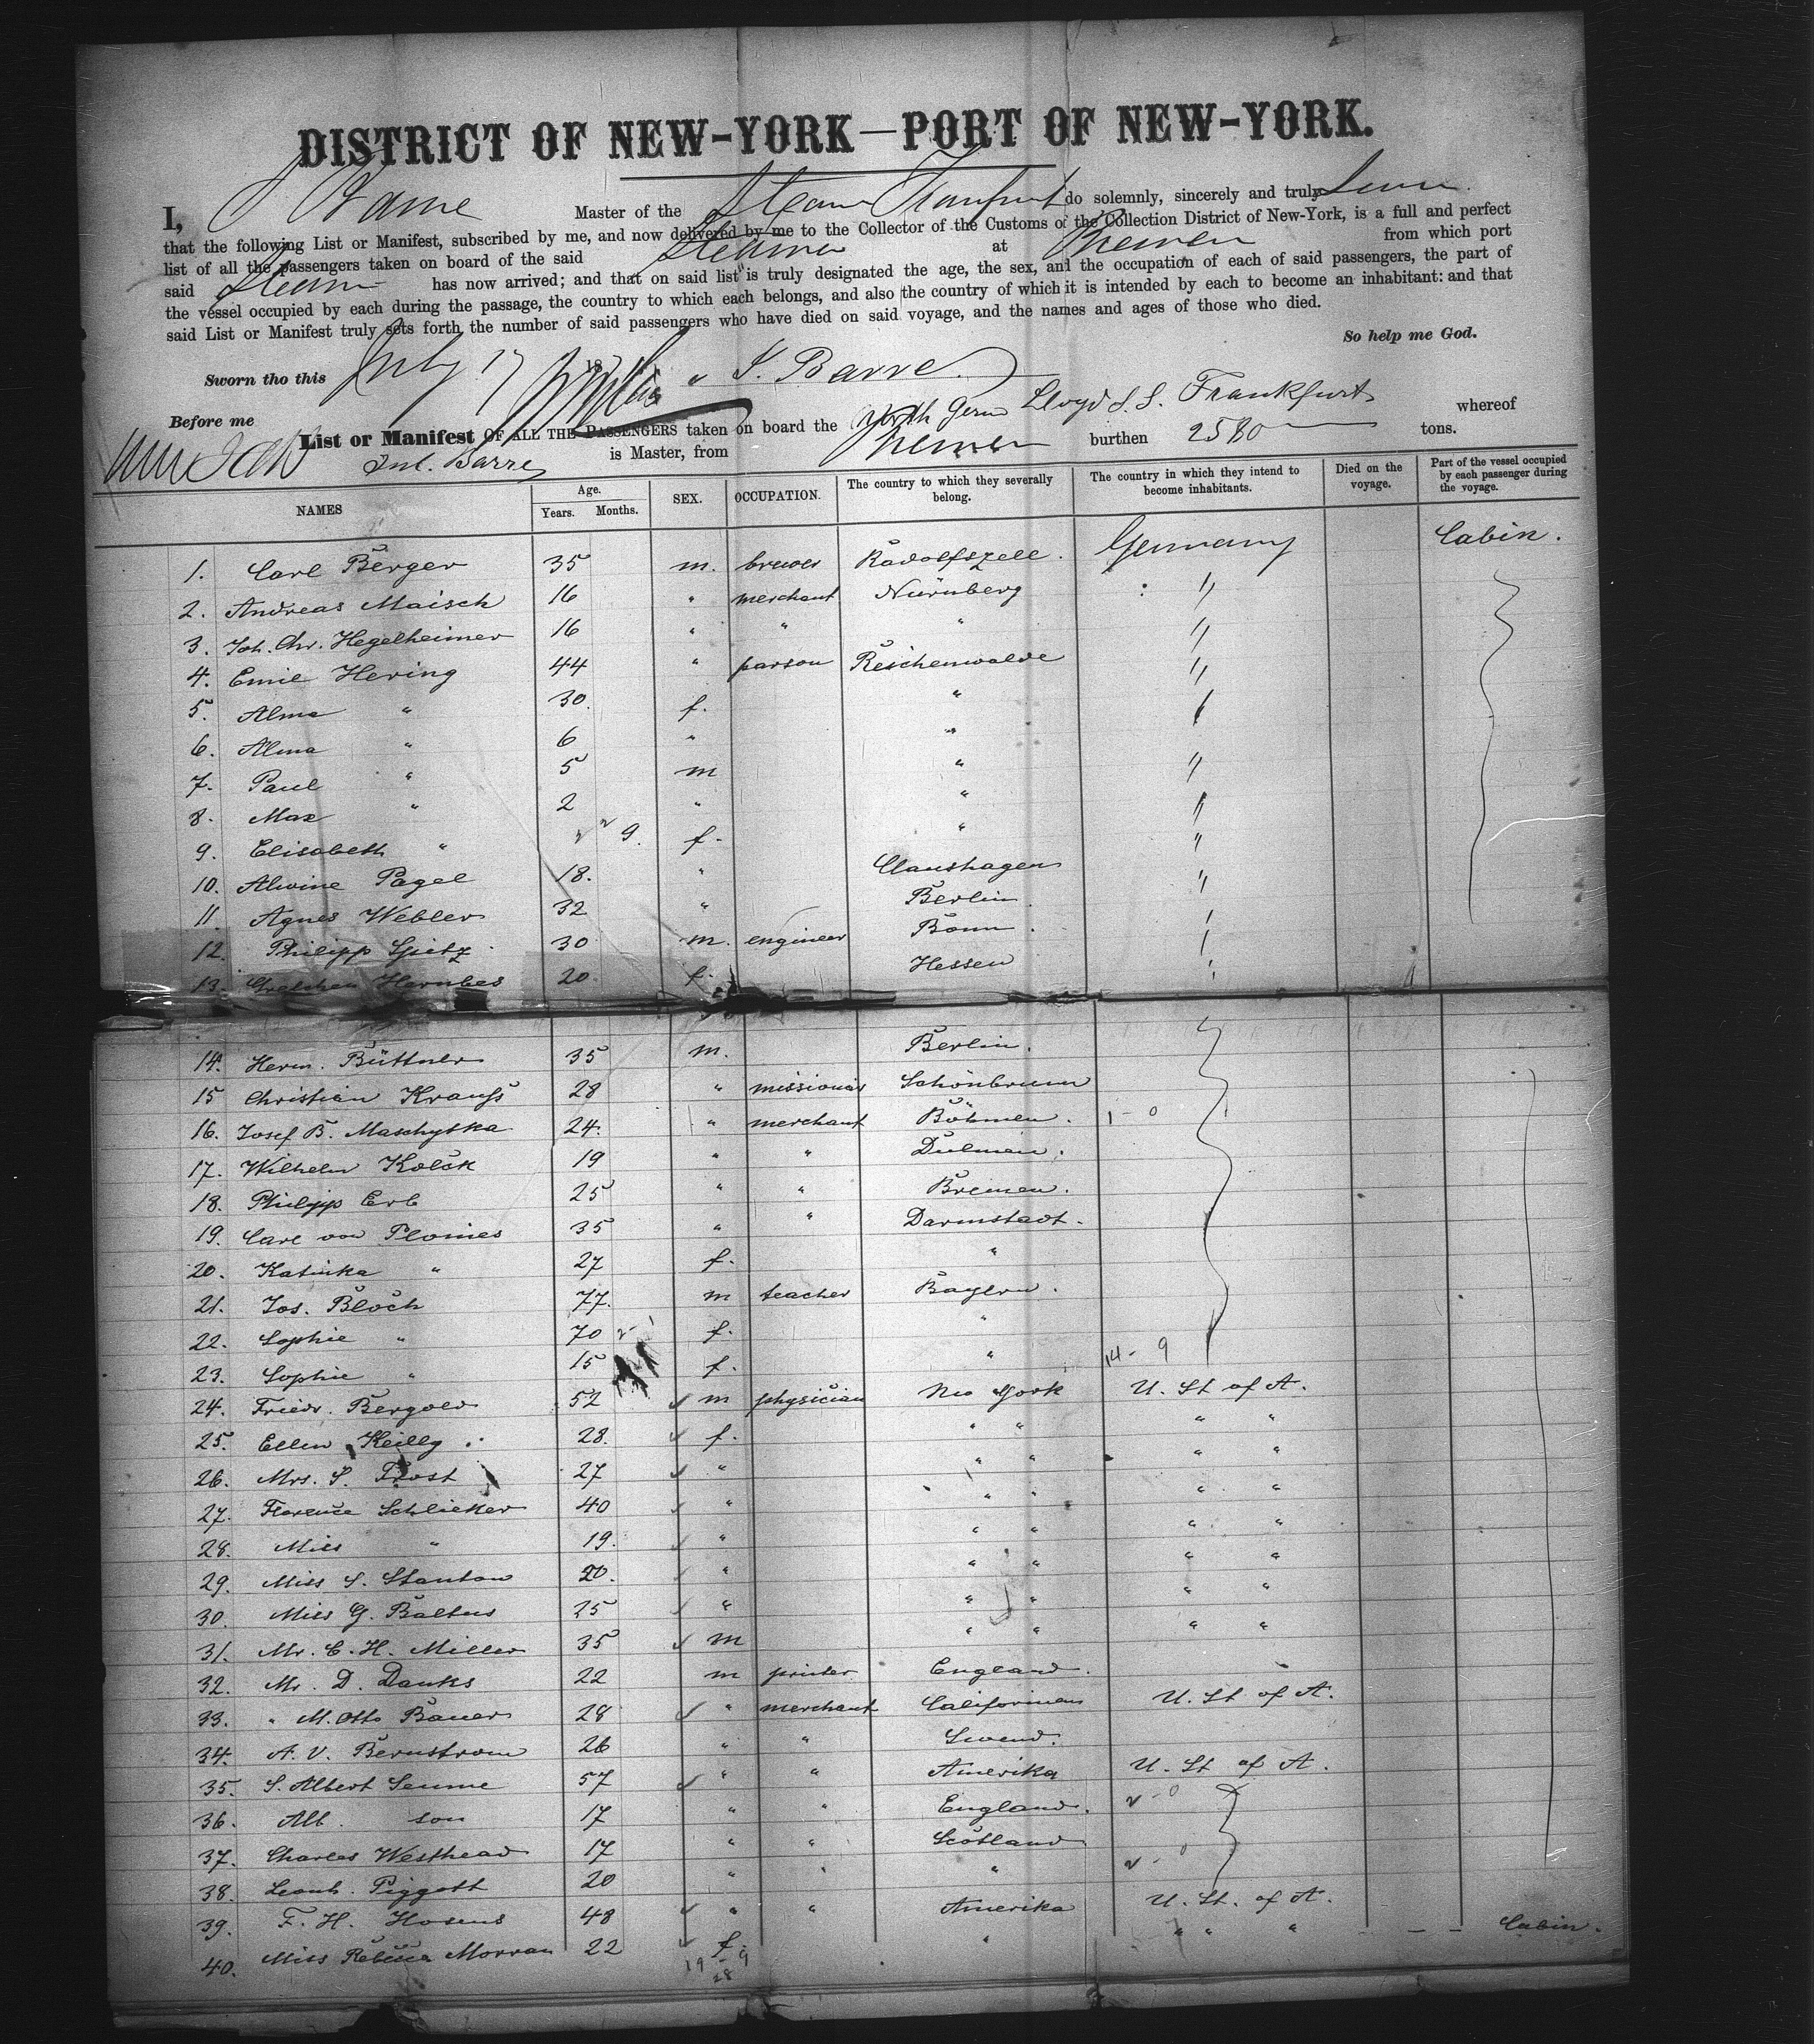 DISTRICT OF NEW-YORK—PORT OF NEW-YORK.
I, J Barre Master of the Steam Frankfurt do solemnly, sincerely and truly Swear
that the following List or Manifest, subscribed by me, and now delivered by me to the Collector of the Customs of the Collection District of New-York, is a full and perfect
list of all the passengers taken on board of the said Steamer at Bremen from which port
said Steamer has now arrived; and that on said list is truly designated the age, the sex, and the occupation of each of said passengers, the part of
the vessel occupied by each during the passage, the country to which each belongs, and also the country of which it is intended by each to become an inhabitant: and that
said List or Manifest truly sets forth the number of said passengers who have died on said voyage, and the names and ages of those who died.
So help me God.
Sworn tho this July 17 18 J. Barre.
Before me
List or Manifest OF ALL THE PASSENGERS taken on board the North Germ Lloyd S. S. Frankfurt whereof
Jul. Barre is Master, from Bremen burthen 2580 tons.
NAMES Age. Years. Months. SEX. OCCUPATION. The country to which they severally belong. The country in which they intend to become inhabitants. Died on the voyage. Part of the vessel occupied by each passenger during the voyage.
1. Carl Berger 35 m. brewer Radolfszell. Germany Cabin.
2. Andreas Maisch 16 " merchant Nürnberg "
3. Joh. Chr. Hegelheimer 16 " " " "
4. Emil Hering 44 " parson Reichenwalde "
5. Alma " 30. f. " "
6. Alma " 6 " " "
7. Paul " 5 m " "
8. Max " 2 " " "
9. Elisabeth " " 9. f. " "
10. Alwine Pagel 18. " Claushagen "
11. Agnes Webler 32 " Berlin. "
12. Philipp Spitz 30 m. engineer Bonn. "
13. Gretchen Hernbes 20. f. Hessen "
14. Herm. Büttner 35 m. Berlin.
15 Christian Krauss 28 " missionär Schönbrunn
16. Josef B. Maschytka 24. " merchant Böhmen. 1 - 0
17. Wilhelm Kolck 19 " " Dülmen.
18. Philipp Erb 25 " " Bremen.
19. Carl von Plönies 35 " " Darmstadt.
20. Katinka " 27 f. "
21. Jos. Bloch 77. m teacher Bayern.
22. Sophie " 70 f. "
23. Sophie " 15 f. " 14 - 9
24. Friedr. Bergold 52 m physician New York U. St of A.
25. Ellen Reilly. 28. f. " " " "
26. Mrs. S. Frost 27 " " " " "
27. Florence Schlieker 40 " " " " "
28. Miss " 19. " " " " "
29. Miss S. Stanton 20. " " " " "
30. Miss G. Baltus 25 " " " " "
31. Mr. C. H. Miller 35 m " " " "
32. Mr. D. Danks 22 m printer England.
33. " M. Otto Bauer 28 " merchant Californien U. St of A.
34. A. V. Bernstrom 26 " " Swend.
35. S. Albert Seume 57 " " Amerika U. St of A.
36. Alb. son 17 " " England. 2 - 0
37. Charles Westhead 17 " " Scotland
38. Leonh. Piggott 20 " " " 2 - 0
39. F. H. Hosens 48 " " Amerika U. St. of A.
40. Miss Rebecca Morran 22 f. " " " " Cabin.
19 - 9
28